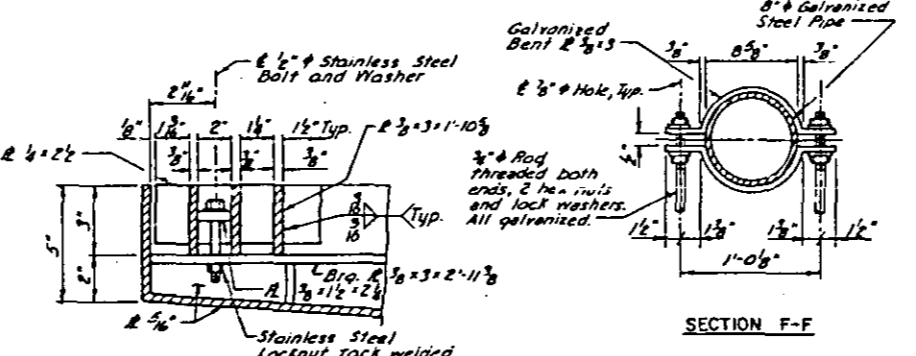 ℄ 1/2" ϕ Stainless Steel
Bolt and Washer
2 1/2"
1/8"
1 3/16"
2"
1 1/4"
1 1/2" Typ.
3/8"
3/8"
3/8"
℄ 1/4 × 2 1/2
℄ 3/8 × 3 × 1'-10 5/8
5"
3"
2"
3/16
3/16
Typ.
Brg. ℄ 3/8 × 3 × 2'-11 3/8
℄ 3/8 × 1 1/2 × 2 1/4
℄ 5/16"
Stainless Steel
Locknut tack welded
8" ϕ Galvanized
Steel Pipe
Galvanized
Bent ℄ 3/8 × 3
3/8"
8 5/8"
3/8"
℄ 7/8" ϕ Hole, Typ.
1/2"
3/4" ϕ Rod
threaded both
ends, 2 hex nuts
and lock washers.
All galvanized.
1 1/2"
1 3/8"
1 3/8"
1 1/2"
1'-0 1/8"
SECTION F-F